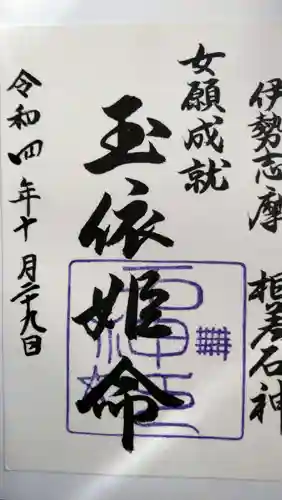 伊勢志摩 相差石神
女願成就
玉依姫命
令和四年十月二十九日